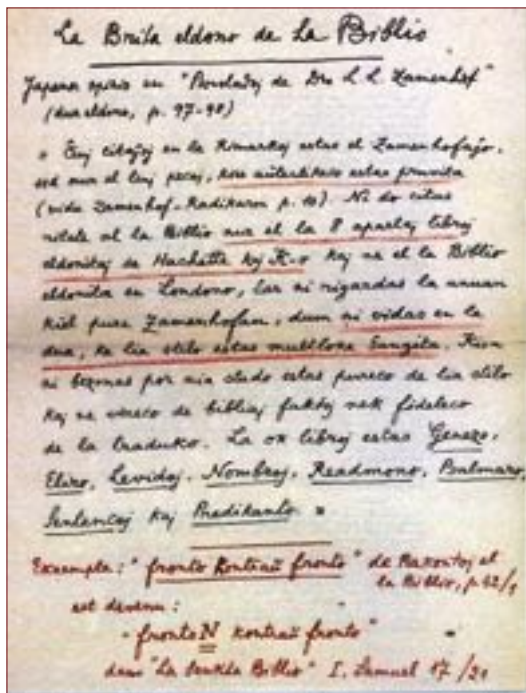 La Brita eldono de La Biblio
Japana opiris en "Paroladoj de Dro L. L. Zamenhof"
(dua eldono, p. 97-98)
" Ĉiuj citaĵoj en la Rimarkoj estas el Zamenhofaĵo,
sed nur el tiuj pecoj, kies aŭtentikeco estas pruvita
(vidu Zamenhof-Radikaron p. 10). Ni do citas
rilate al la Biblio nur el la 8 apartaj libroj
eldonitaj de Hachette kaj K-o kaj ne el la Biblio
eldonita en Londono, ĉar ni rigardas la unuan
kiel pure Zamenhofan, dum ni vidas en la
dua, ke lia stilo estas multloke ŝanĝita. Kion
ni bezonas por nia studo estas pureco de lia stilo
kaj ne vereco de bibliaj faktoj nek fideleco
de la traduko. La ok libroj estas Genezo,
Eliro, Levidoj, Nombroj, Readmono, Psalmaro,
Sentencoj kaj Predikanto. "
Exemple: "fronto kontraŭ fronto" de Rakontoj el
la Biblio, p. 62/1
est devenu:
"frontoN kontraŭ fronto"
dans "La Sankta Biblio" I. Samuel 17/21